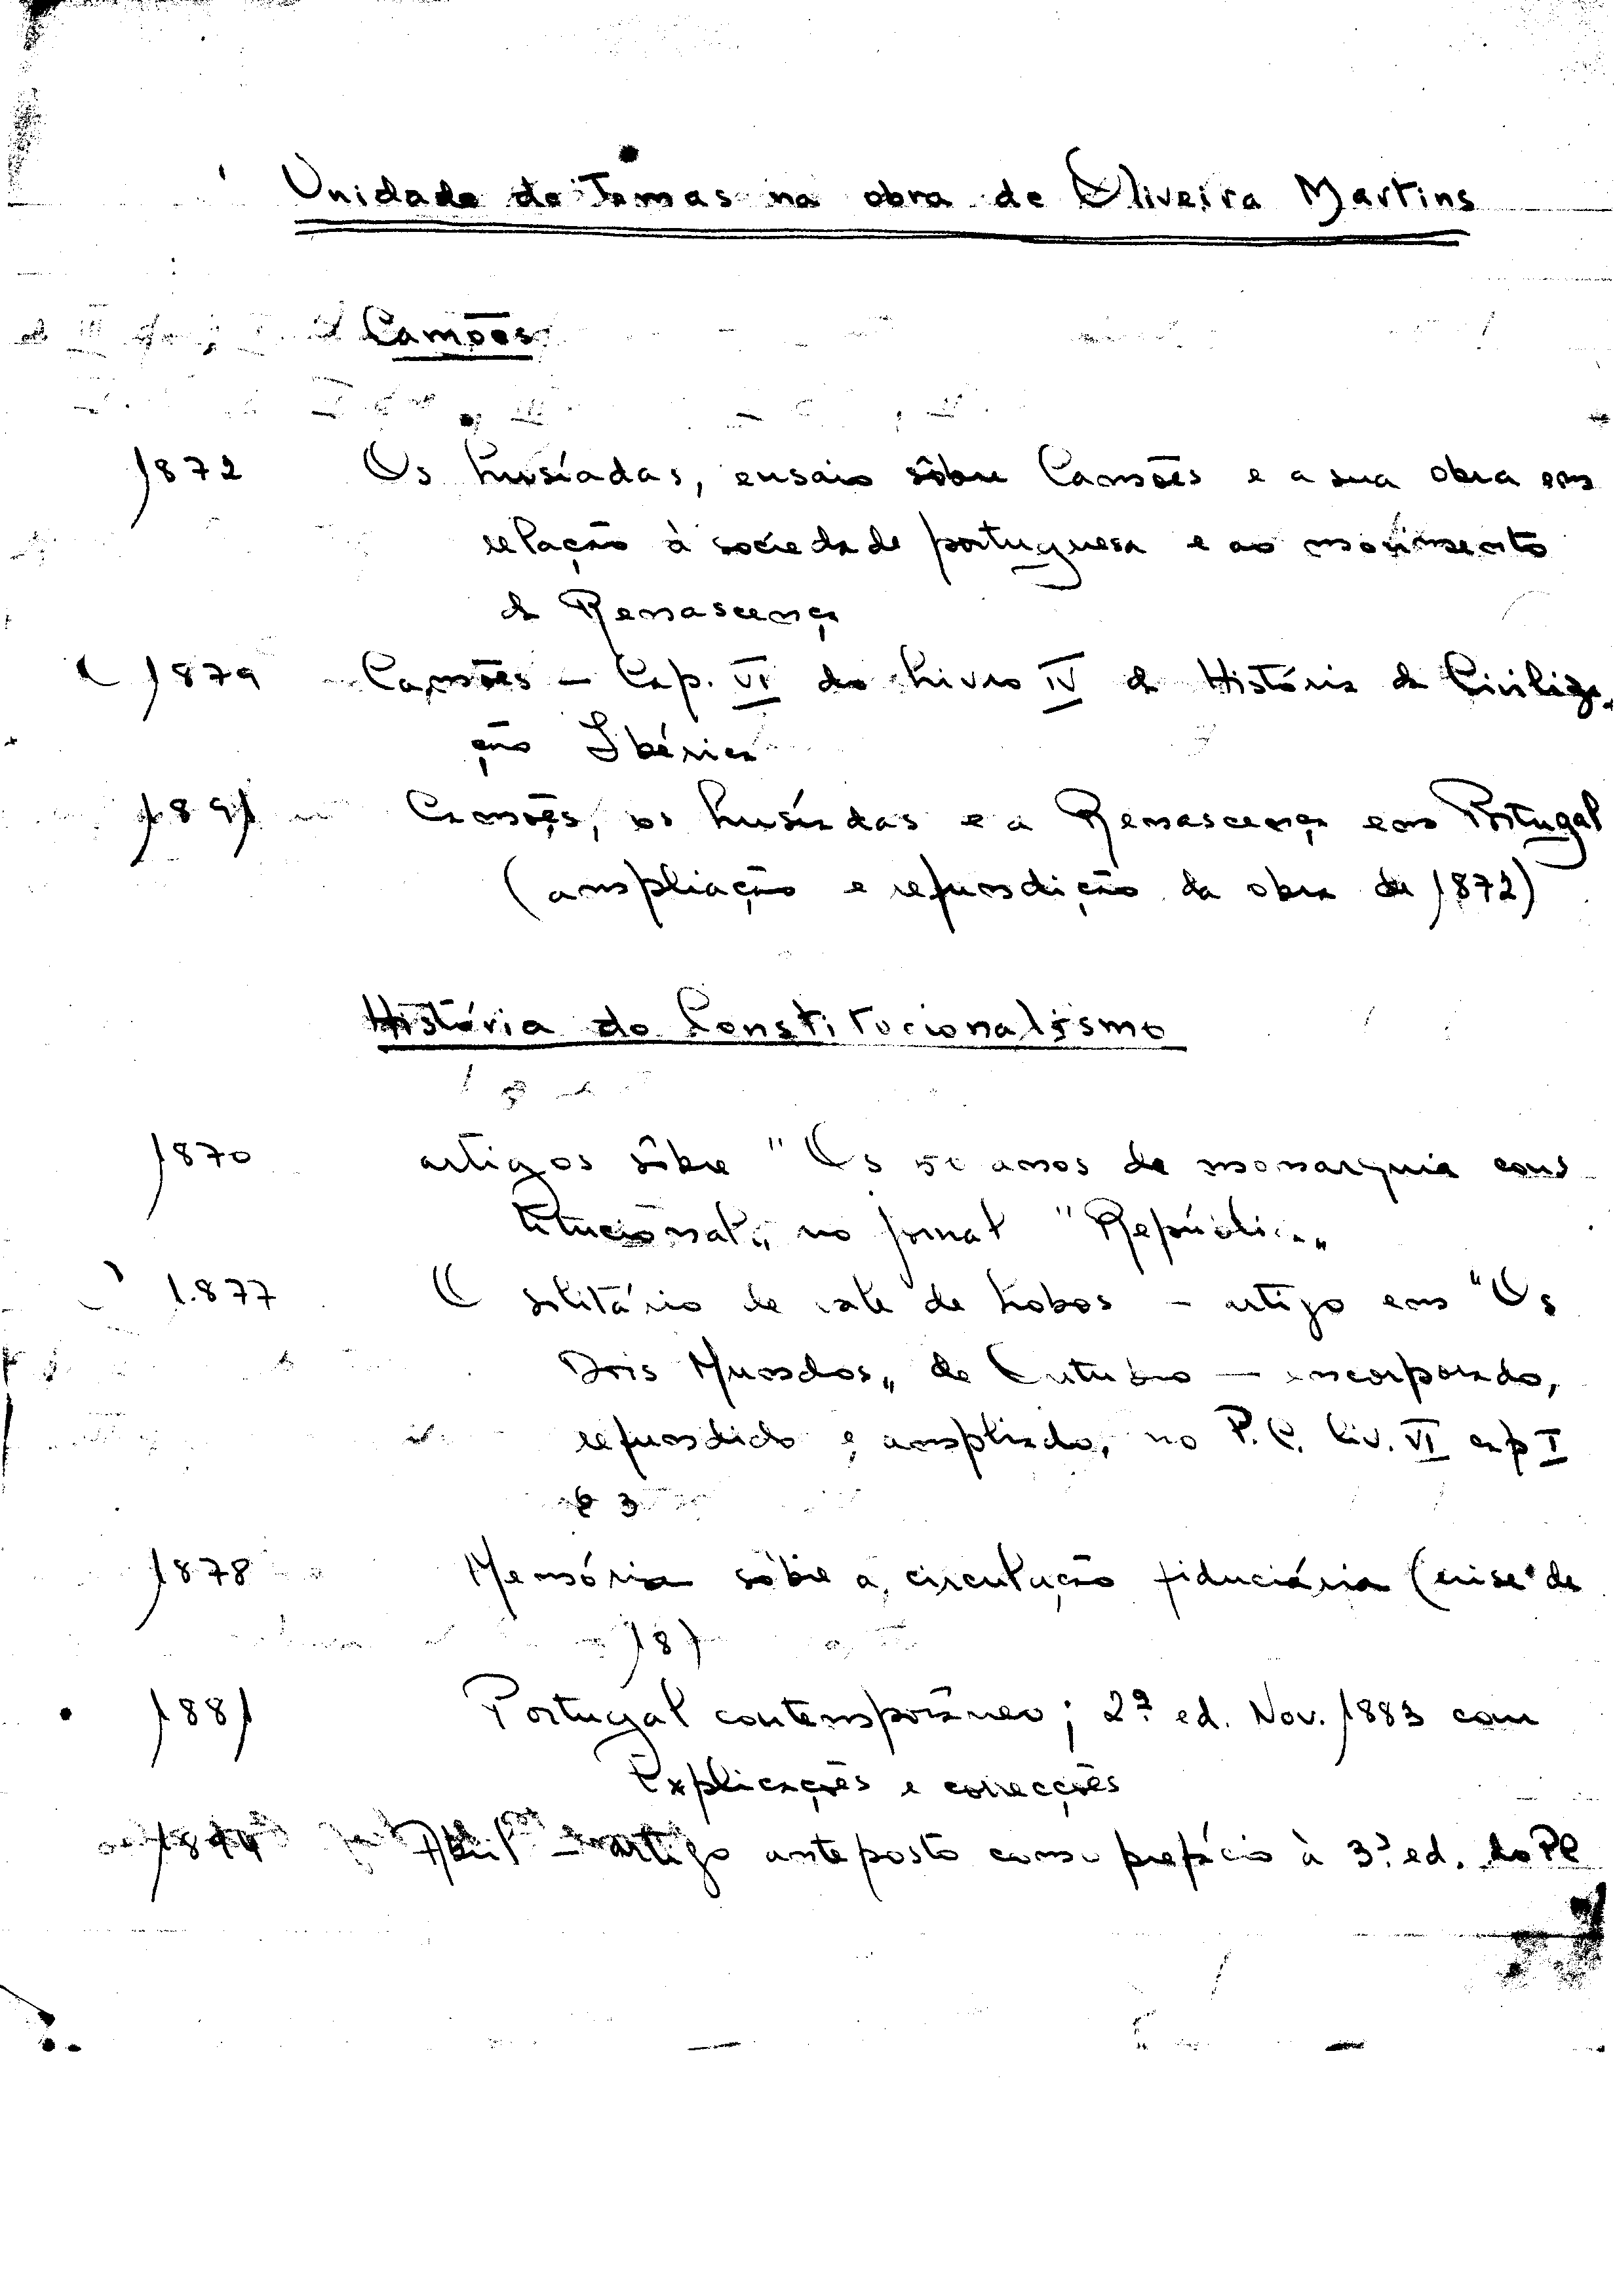 Unidade de Temas na obra de Oliveira Martins
Camões
1872 Os Lusíadas, ensaio sôbre Camões e a sua obra em
relação à sociedade portuguesa e ao movimento
da Renascença
1879 Camões — Cap. VI do Livro IV da História da Civiliza-
ção Ibérica
1891 Camões, os Lusíadas e a Renascença em Portugal
(ampliação e refundição da obra de 1872)
História do Constitucionalismo
1870 artigos sôbre "Os 50 anos de monarquia cons
titucional", no jornal "República"
1877 O solitário de vale de Lobos — artigo em "Os
Dois Mundos" de Outubro — incorporado,
refundido e ampliado, no P.C. Liv. VI cap I
e 3
1878 Memória sôbre a circulação fiduciária (crise de
18)
1881 Portugal contemporâneo; 2ª ed. Nov. 1883 com
Explicações e correcções
1894 Abril — artigo anteposto como prefácio à 3ª ed. do PC